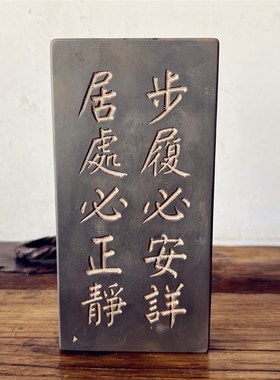 步履必安詳
居處必正靜